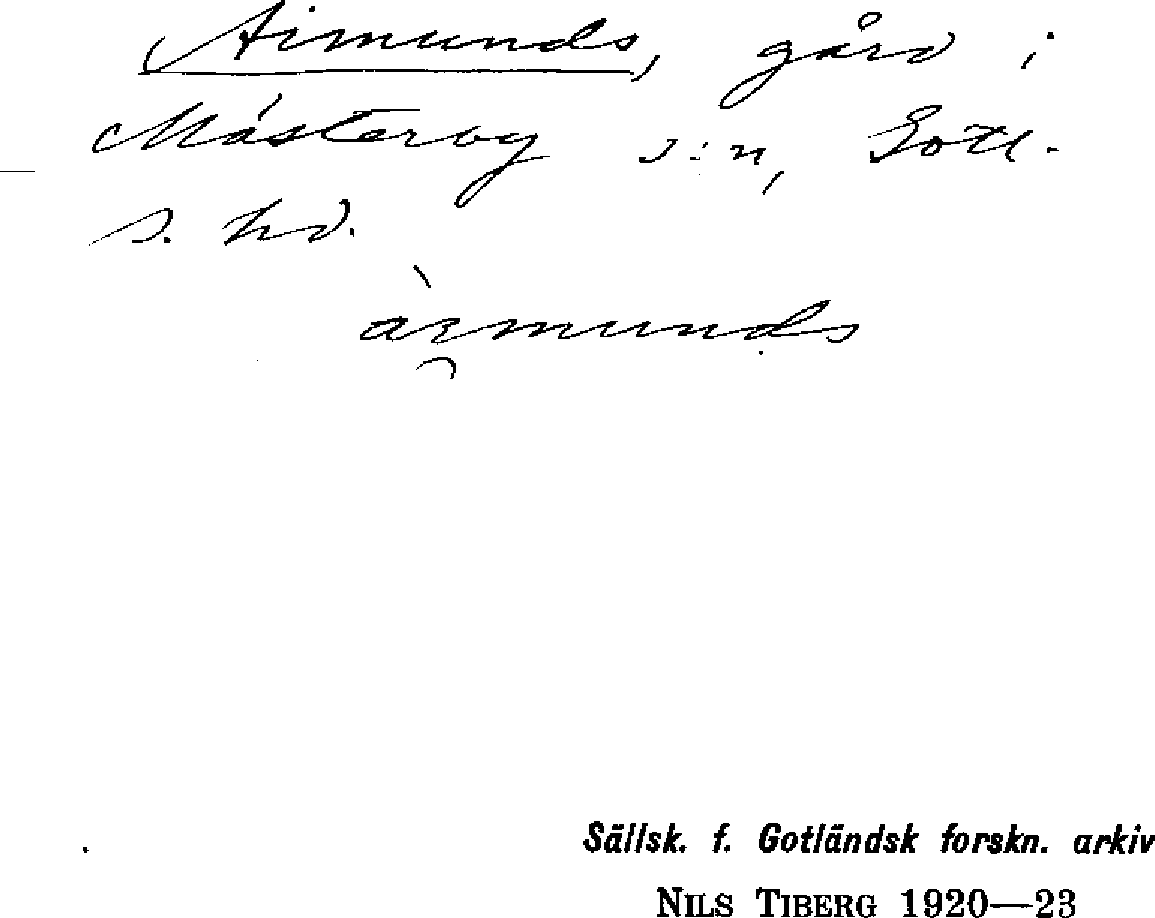 Aimunds, gård i
Mästerby s:n, Gotl.
s. hd.
àimunds
Sällsk. f. Gotländsk forskn. arkiv
NILS TIBERG 1920—23